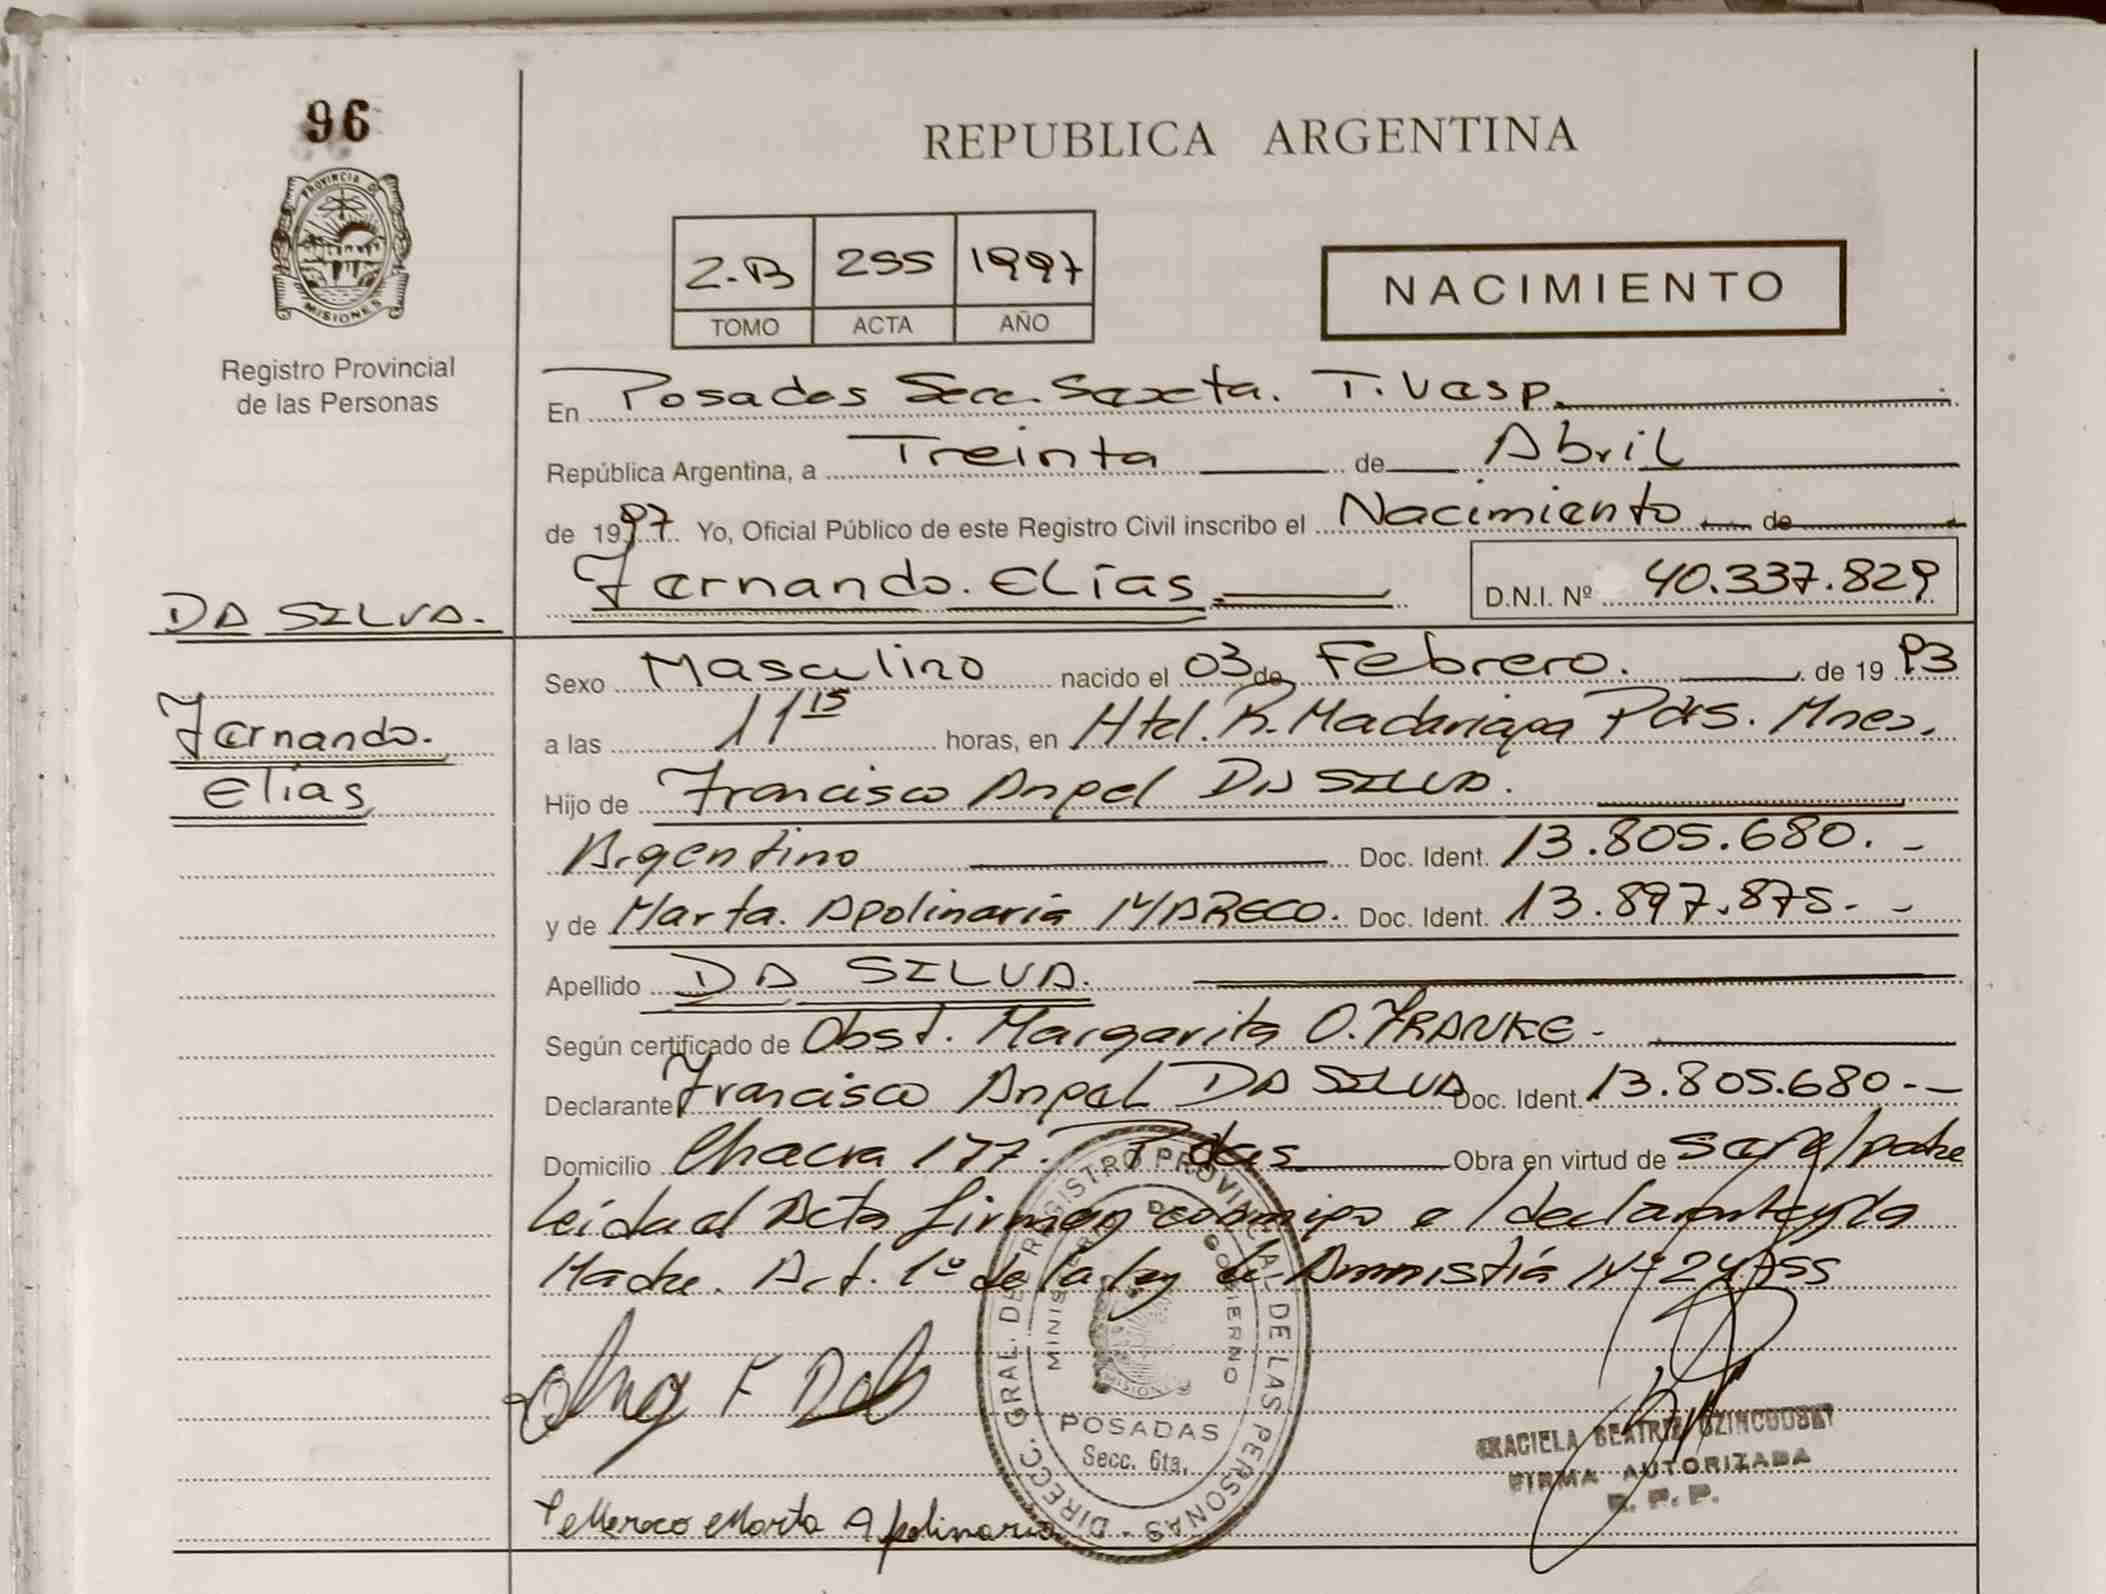 96
PROVINCIA DE
MISIONES
Registro Provincial
de las Personas
REPUBLICA ARGENTINA
2-B 255 1997
TOMO ACTA AÑO
NACIMIENTO
En Posadas Secc. Sexta. T. Vesp.
República Argentina, a Treinta de Abril
de 1997 Yo, Oficial Público de este Registro Civil inscribo el Nacimiento de
Fernando. Elías D.N.I. Nº 40.337.829
DA SILVA.
Fernando.
Elías
Sexo Masculino nacido el 03 de Febrero. de 19 93
a las 11 15 horas, en Htal. R. Madariaga Pdas. Mnes.
Hijo de Francisco Angel DA SILVA.
Argentino Doc. Ident. 13.805.680.-
y de Marta. Apolinaria MARECO. Doc. Ident. 13.897.875.-
Apellido DA SILVA.
Según certificado de Obst. Margarita O. FRANKE-
Declarante Francisco Angel DA SILVA Doc. Ident. 13.805.680.-
Domicilio Chacra 177. Pdas Obra en virtud de ser el padre
Leída el Acta firman conmigo el declarante y la
Madre. Art. 1º de la ley de Amnistiá Nº 24.755
DIRECC. GRAL. DEL REGISTRO PROVINCIAL DE LAS PERSONAS -
MINISTERIO DE GOBIERNO
MISIONES
POSADAS
Secc. 6ta.
GRACIELA BEATRIZ
FIRMA AUTORIZADA
R. P. P.
Mareco Marta Apolinaria